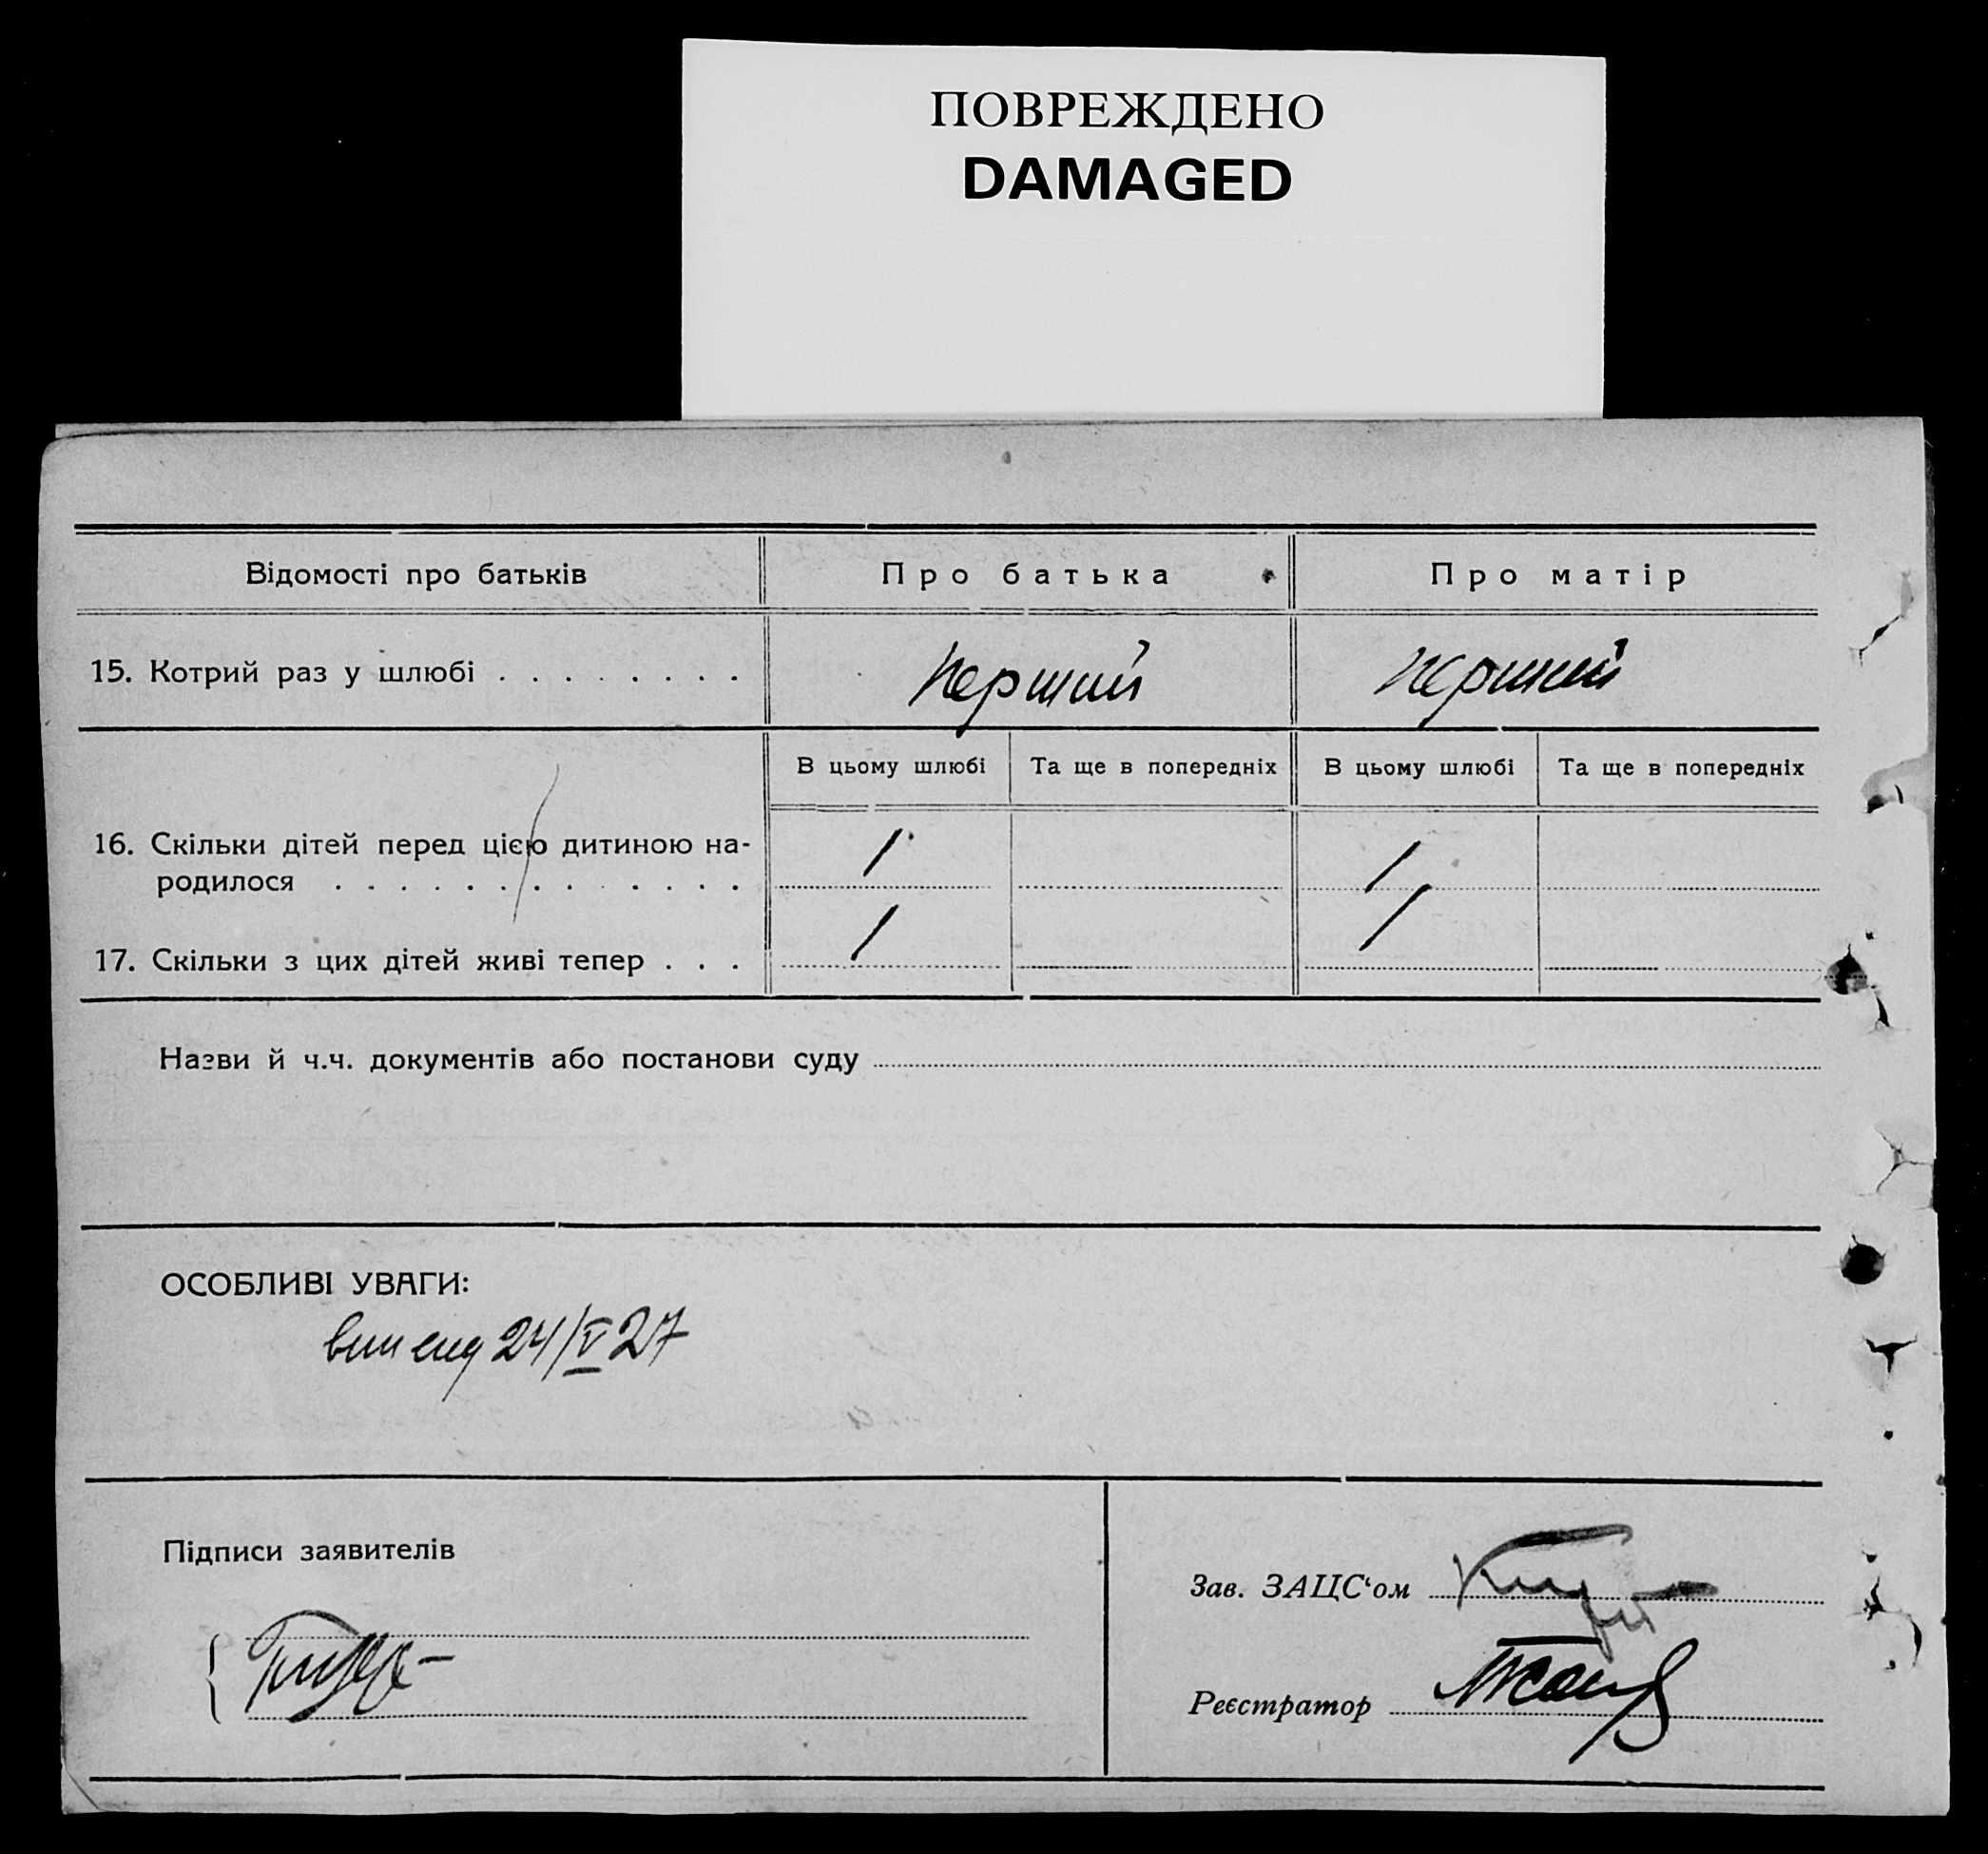 ПОВРЕЖДЕНО
DAMAGED
Відомості про батьків Про батька Про матір
15. Котрий раз у шлюбі . . . . . . . . Перший Перший
В цьому шлюбі Та ще в попередніх В цьому шлюбі Та ще в попередніх
16. Скільки дітей перед цією дитиною на-
родилося . . . . . . . . . . . . . 1 1
17. Скільки з цих дітей живі тепер . . . 1 1
Назви й ч.ч. документів або постанови суду
ОСОБЛИВІ УВАГИ:
24/V 27
Підписи заявителів
Зав. ЗАЦС‘ом
Реєстратор